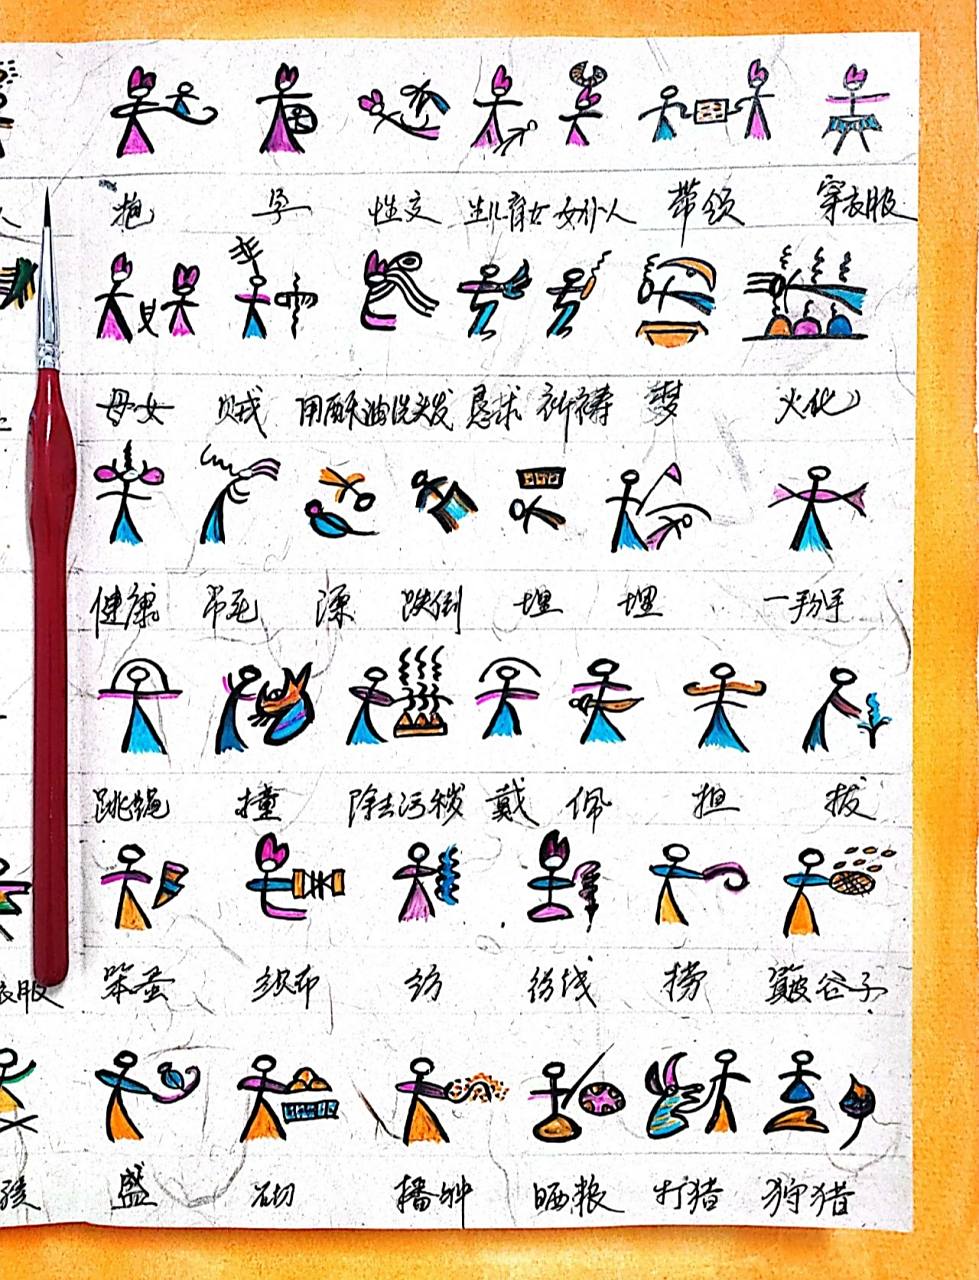 抱 孕 性交 生儿育女 女仆人 带领 穿衣服
母女 贼 用酥油洗头发 恳求 祈祷 梦 火化
健康 吊死 漂 跌倒 埋 埋 一拃
跳绳 撞 除去污秽 戴 佩 担 拔
衣服 笨蛋 织布 纺 纺线 捞 簸谷子
盛 砌 播种 晒粮 打猪 狩猎